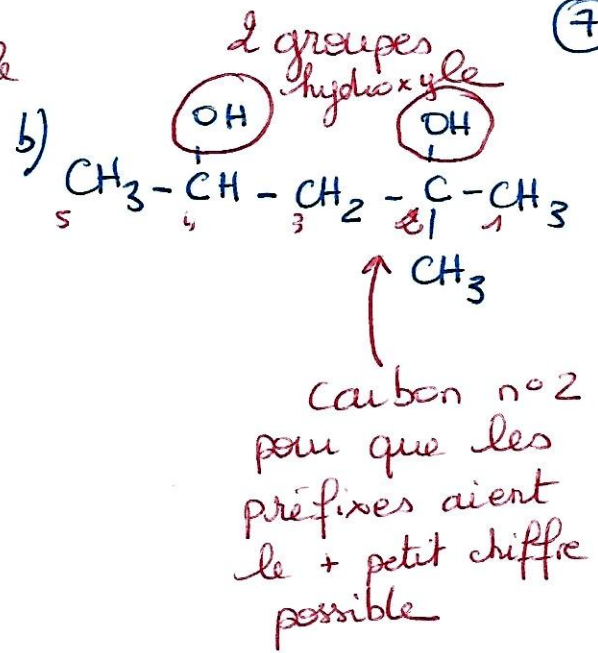 7
le
2 groupes
hydroxyle
b)
OH OH
CH3 - CH - CH2 - C - CH3
5 4 3 2 1
CH3
Carbon n° 2
pour que les
préfixes aient
le + petit chiffre
possible